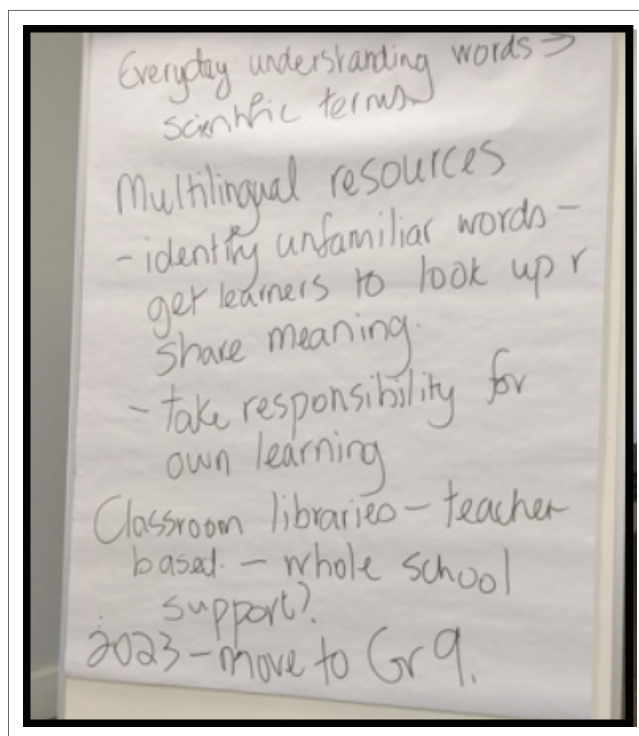 Everyday understanding words →
scientific terms
Multilingual resources
- identify unfamiliar words -
get learners to look up +
share meaning.
- take responsibility for
own learning
Classroom libraries - teacher
based. - whole school
support?
2023 - move to Gr 9.